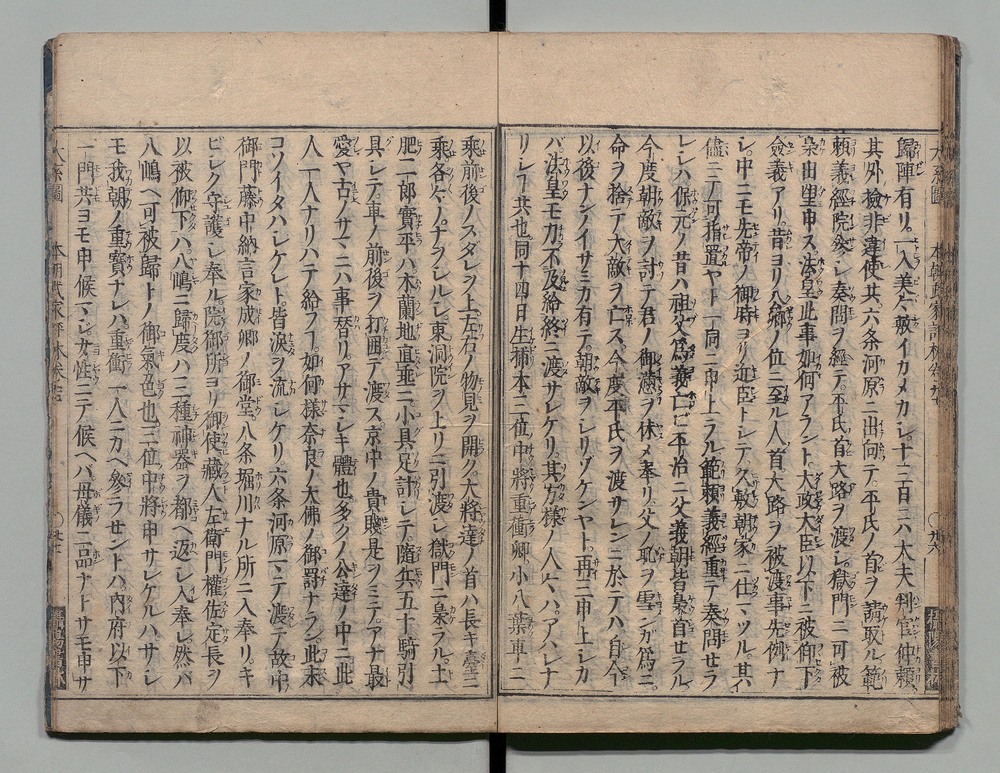 歸陣有リ。一入美々敷イカメカシ。十三日ニハ大夫判官仲頼
其外檢非違使共六条河原ニ出向テ。平氏ノ首ヲ請取ル範
頼義經院參シ奏問ヲ經テ。平氏首大路ヲ渡シ。獄門ニ可被
梟由望申ス。法皇此事如何アラント。大政大臣以下ニ被仰下
僉義アリ。昔ヨリ八卿ノ位ニ至ル人首大路ヲ被渡事先例ナ
シ。中ニモ先帝ノ御時ヨリ近臣トシテ久敷朝家ニ仕マツル。其
儘ニテ可指置ヤト一同ニ申上ラル。範頼義經重テ奏問せラ
レシハ。保元ノ昔ハ祖父爲義亡ヒ平治ニ父義朝皆梟首セラル
今度朝敵ヲ討テ君ノ御憑ヲ休メ奉リ。父ノ恥ヲ雪ンガ爲ニ
命ヲ捨テ大敵ヲ亡ス。今度平氏ヲ渡サレンニ於テハ自今
以後ナンノイサミカ有テ。朝敵ヲシリゾケンヤト再三申上シカ
バ。法皇モ力不及給終ニ渡サレケリ。其方様ノ人々ハ。アハレナ
リシヿ共也同十四日生捕本三位中將重衡卿。小八葉車ニ
乘前後ノスダレヲ上左右ノ物見ヲ開ク。大將達ノ首ハ長キ臺ニ
乘各々ノナヲシルシ東洞院ヲ上リニ引渡シ獄門ニ梟ラル。土
肥二郎實平ハ木蘭地直垂ニ小具足計シテ。隨兵五十騎引
具シテ車ノ前後ヲ打囲テ渡ス。京中ノ貴賤是ヲミテ。アナ最
愛ヤ古ノサマニハ事替リ。アサマシキ體也。多クノ公達ノ中ニ此
人一人ナリハテ給フヿ如何様奈良ノ大佛ノ御罰ナラン。此末
コソイタハシケレト。皆涙ヲ流シケリ六条河原マテ渡テ。故中
御門藤中納言家成卿ノ御堂。八条堀川ナル所ニ入奉リ。キ
ビシク守護シ奉ル。院御所ヨリ御使藏人左衛門權佐定長ヲ
以被仰下ハ。八嶋ニ歸度ハ三種神器ヲ都ヘ返シ入奉レ。然バ
八嶋ヘ可被歸トノ御氣色也。三位中將申サレケルハ。サシ
モ我朝ノ重寶ナレハ。重衡一人ニカヘ參ラセントハ。內府以下
一門共ヨモ申候マシ。女性ニテ候ヘバ。母儀二品ナトサモ申サ